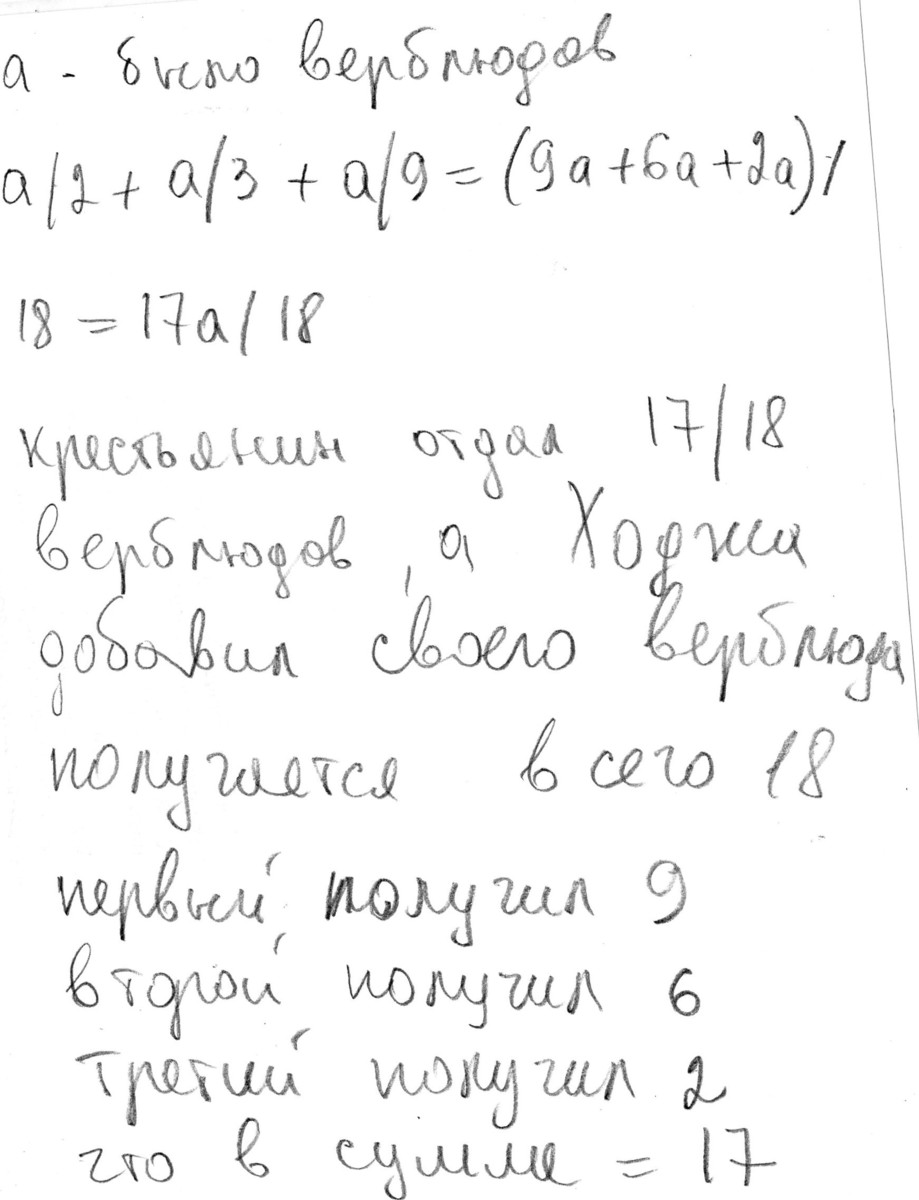 а - было верблюдов
а/2 + а/3 + а/9 = (9а+6а+2а)/
18 = 17а/18
крестьянин отдал 17/18
верблюдов, а Ходжа
добавил своего верблюда
получается всего 18
первый получил 9
второй получил 6
третий получил 2
что в сумме = 17